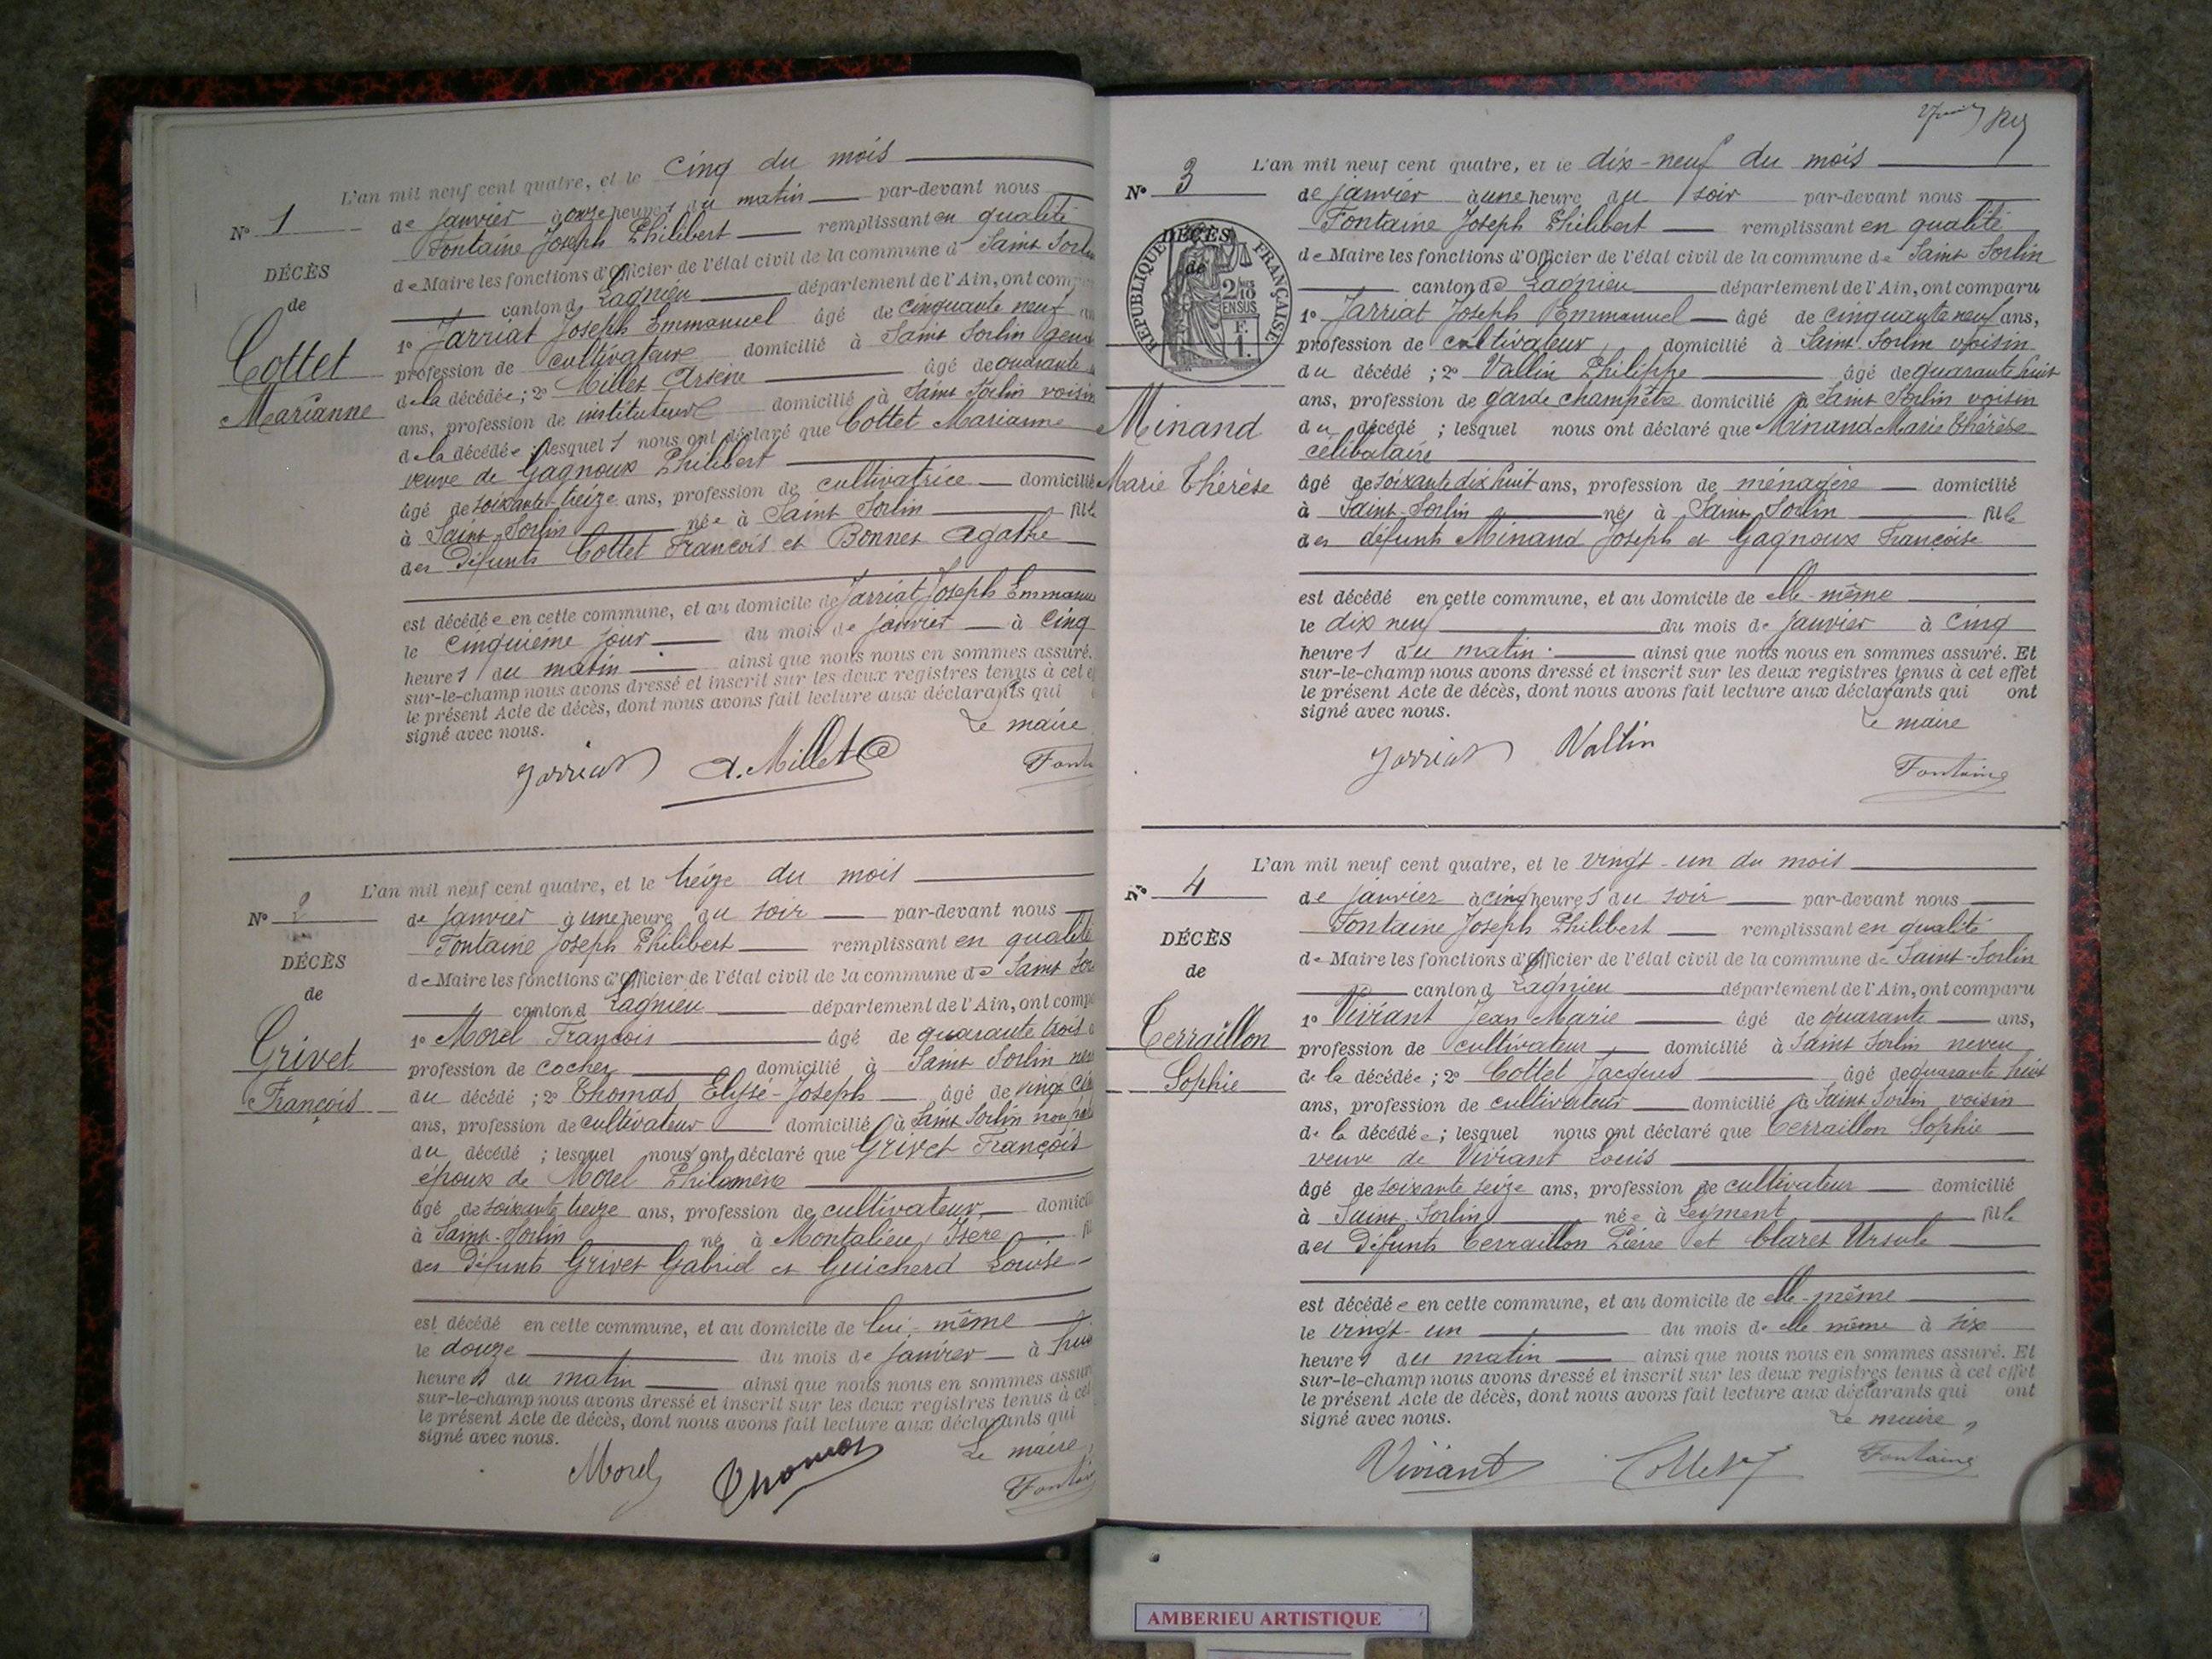 L'an mil neuf cent quatre, et le cinq du mois
N° 1
de janvier à onze heures du matin par-devant nous
Fontaine Joseph Philibert remplissant en qualité
DÉCÈS
de Maire les fonctions d'Officier de l'état civil de la commune d Saint Sorlin
de
canton d Lagnieu département de l'Ain, ont comparu
Cottet
Marianne
1° Jarriat Joseph Emmanuel âgé de cinquante neuf
profession de cultivateur domicilié à Saint Sorlin
de la décédée ; 2° Millet Arsène âgé de quarante
ans, profession de instituteur domicilié à Saint Sorlin voisin
de la décédée ; lesquels nous ont déclaré que Cottet Marianne
veuve de Gagnoux Philibert
âgé de soixante-treize ans, profession de cultivatrice domicilié
à Saint Sorlin née à Saint Sorlin fille
des défunts Cottet François et Bonnet Agathe
est décédée en cette commune, et au domicile de Jarriat Joseph Emmanuel
le cinquième jour du mois de janvier à cinq
heures du matin ainsi que nous nous en sommes assuré.
sur-le-champ nous avons dressé et inscrit sur les deux registres tenus à cet
le présent Acte de décès, dont nous avons fait lecture aux déclarants qui
signé avec nous.
Le maire
Jarriat A. Millet Font
L'an mil neuf cent quatre, et le treize du mois
N° 2
de janvier à une heure du soir par-devant nous
Fontaine Joseph Philibert remplissant en qualité
DÉCÈS
de Maire les fonctions d'Officier de l'état civil de la commune de Saint Sor
de
canton d Lagnieu département de l'Ain, ont comp
Grivet
François
1° Morel François âgé de quarante trois
profession de cocher domicilié à Saint Sorlin neveu
du décédé ; 2° Thomas Elysé-Joseph âgé de vingt
ans, profession de cultivateur domicilié à Saint Sorlin
du décédé ; lesquel nous ont déclaré que Grivet François
époux de Morel Philomène
âgé de soixante treize ans, profession de cultivateur domicil
à Saint-Sorlin né à Montalieu Isère
des défunts Grivet Gabriel et Guicherd Louise
est décédé en cette commune, et au domicile de lui-même
le douze du mois de janvier à hui
heures du matin ainsi que nous nous en sommes assur
sur-le-champ nous avons dressé et inscrit sur les deux registres tenus à cet
le présent Acte de décès, dont nous avons fait lecture aux déclarants qui
signé avec nous.
Le maire,
Morel Thomas Fontai
L'an mil neuf cent quatre, et le dix-neuf du mois
N° 3
de janvier à une heure du soir par-devant nous
Fontaine Joseph Philibert remplissant en qualité
DÉCÈS
de
REPUBLIQUE FRANÇAISE
2/10 EN SUS
F. 1.
de Maire les fonctions d'Officier de l'état civil de la commune de Saint Sorlin
canton de Lagnieu département de l'Ain, ont comparu
1° Jarriat Joseph Emmanuel âgé de cinquante neuf ans,
profession de cultivateur domicilié à Saint Sorlin voisin
du décédé ; 2° Vallin Philippe âgé de quarante huit
ans, profession de garde champêtre domicilié à Saint Sorlin voisin
Minand
Marie Thérèse
du décédé ; lesquel nous ont déclaré que Minand Marie Thérèse
célibataire
âgé de soixante dix huit ans, profession de ménagère domicilié
à Saint-Sorlin née à Saint Sorlin fille
des défunts Minand Joseph et Gagnoux Françoise
est décédé en cette commune, et au domicile de elle-même
le dix neuf du mois de janvier à cinq
heures du matin ainsi que nous nous en sommes assuré. Et
sur-le-champ nous avons dressé et inscrit sur les deux registres tenus à cet effet
le présent Acte de décès, dont nous avons fait lecture aux déclarants qui ont
signé avec nous.
Le maire
Jarriat Vallin Fontaine
L'an mil neuf cent quatre, et le vingt-un du mois
N° 4
de janvier à cinq heures du soir par-devant nous
Fontaine Joseph Philibert remplissant en qualité
DÉCÈS
de Maire les fonctions d'Officier de l'état civil de la commune de Saint-Sorlin
de
canton d Lagnieu département de l'Ain, ont comparu
Terraillon
Sophie
1° Viviant Jean Marie âgé de quarante ans,
profession de cultivateur domicilié à Saint Sorlin neveu
de la décédée ; 2° Cottet Jacques âgé de quarante huit
ans, profession de cultivateur domicilié à Saint Sorlin voisin
de la décédée ; lesquel nous ont déclaré que Terraillon Sophie
veuve de Viviant Louis
âgé de soixante seize ans, profession de cultivateur domicilié
à Saint Sorlin née à Leyment fille
des défunts Terraillon Pierre et Claret Ursule
est décédée en cette commune, et au domicile de elle-même
le vingt-un du mois de elle même à six
heures du matin ainsi que nous nous en sommes assuré. Et
sur-le-champ nous avons dressé et inscrit sur les deux registres tenus à cet effet
le présent Acte de décès, dont nous avons fait lecture aux déclarants qui ont
signé avec nous.
Le maire,
Viviant Cottet Fontaine
AMBERIEU ARTISTIQUE